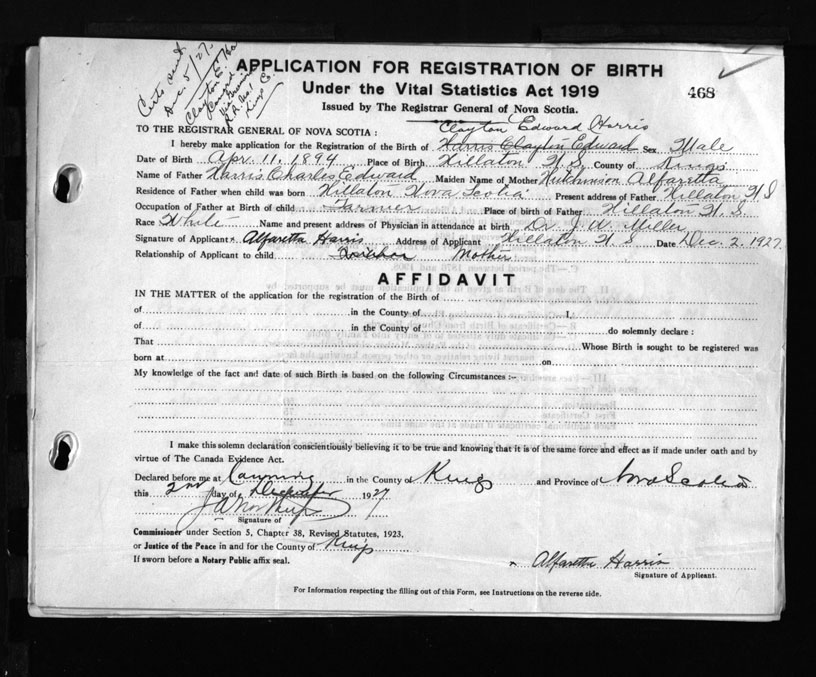 Certs sent
Dec. 5/27.
Clayton E.
APPLICATION FOR REGISTRATION OF BIRTH
Under the Vital Statistics Act 1919
468
Issued by The Registrar General of Nova Scotia.
Clayton Edward Harris
TO THE REGISTRAR GENERAL OF NOVA SCOTIA :
I hereby make application for the Registration of the Birth of Harris Clayton Edward Sex Male
Date of Birth Apr. 11. 1894 Place of Birth Hillaton N.S. County of Kings
Name of Father Harris Charles Edward Maiden Name of Mother Hutchinson Alfaretta
Residence of Father when child was born Hillaton Nova Scotia Present address of Father Hillaton N S
Occupation of Father at Birth of child Farmer Place of birth of Father Hillaton N. S.
Race White Name and present address of Physician in attendance at birth Dr. J. W. Miller
Signature of Applicant x Alfaretta Harris Address of Applicant Hillaton N. S Date Dec. 2. 1927.
Relationship of Applicant to child Mother
AFFIDAVIT
IN THE MATTER of the application for the registration of the Birth of
of in the County of I,
of in the County of do solemnly declare :
That Whose Birth is sought to be registered was
born at on
My knowledge of the fact and date of such Birth is based on the following Circumstances :-
I make this solemn declaration conscientiously believing it to be true and knowing that it is of the same force and effect as if made under oath and by
virtue of The Canada Evidence Act.
Declared before me at Canning in the County of Kings and Province of Nova Scotia
this 2nd day of December 1927
Signature of
Commissioner under Section 5, Chapter 38, Revised Statutes, 1923,
or Justice of the Peace in and for the County of Kings
If sworn before a Notary Public affix seal.
x Alfaretta Harris
Signature of Applicant.
For Information respecting the filling out of this Form, see Instructions on the reverse side.